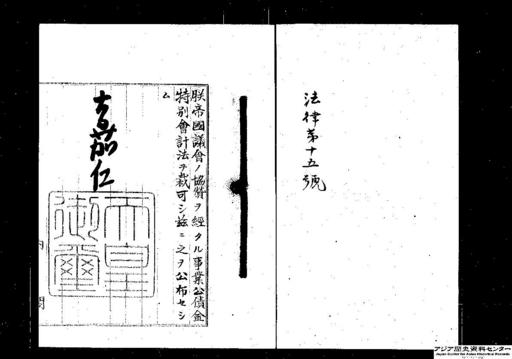 法律第十五號
朕帝國議會ノ協賛ヲ經タル事業公債金
特別會計法ヲ裁可シ茲ニ之ヲ公布セシ
ム
嘉仁
天皇
御璽
内閣
アジア歴史資料センター
Japan Center for Asian Historical Records